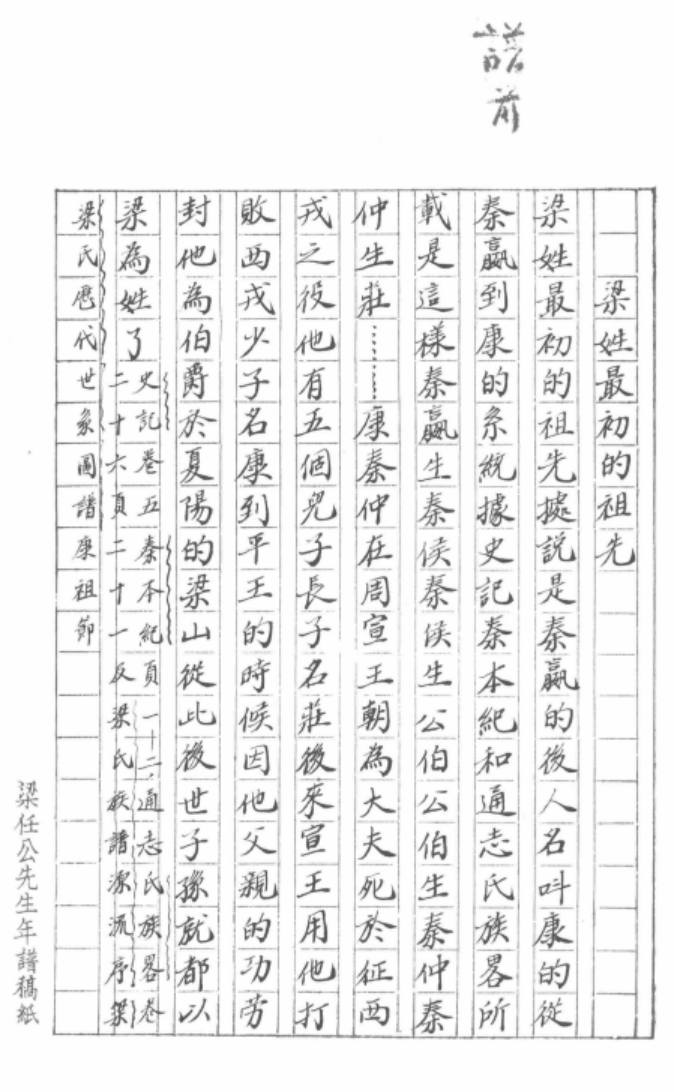 譜前
梁姓最初的祖先
梁姓最初的祖先據說是秦嬴的後人名叫康的從
秦嬴到康的系統據史記秦本紀和通志氏族畧所
載是這樣秦嬴生秦侯秦侯生公伯公伯生秦仲秦
仲生莊………康秦仲在周宣王朝為大夫死於征西
戎之役他有五個兒子長子名莊後來宣王用他打
敗西戎少子名康到平王的時候因他父親的功勞
封他為伯爵於夏陽的梁山從此後世子孫就都以
梁為姓了
史記卷五秦本紀頁一十二、通志氏族畧卷
二十六頁二十一反梁氏族譜源流序梁
梁氏歷代世系圖譜康祖節
梁任公先生年譜稿紙